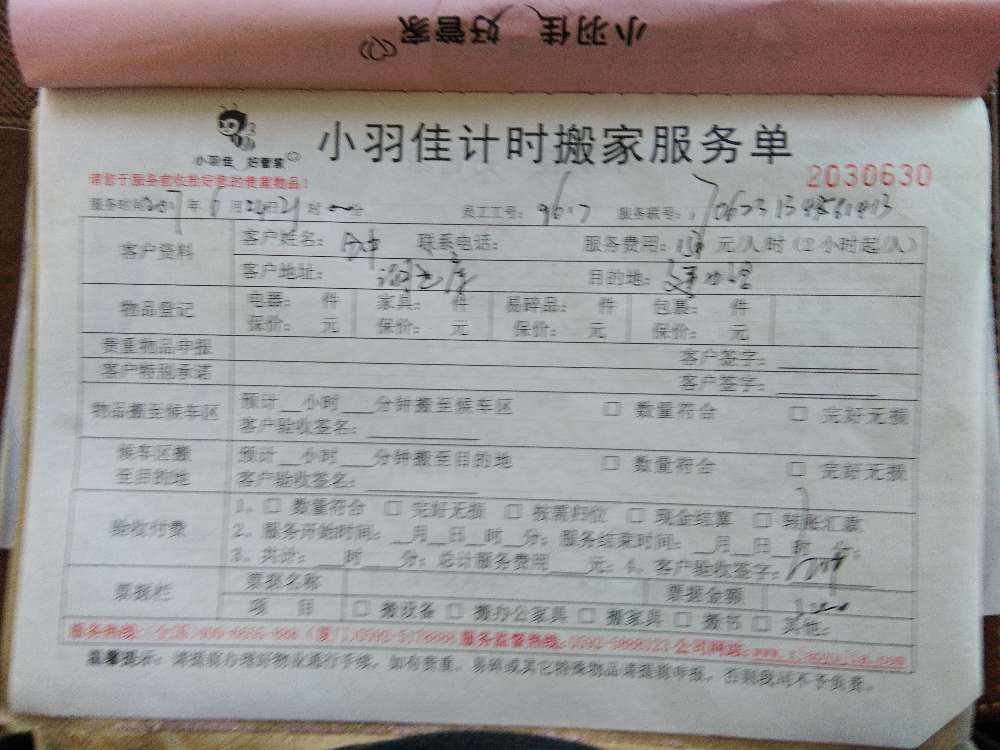 小羽佳 好管家
小羽佳 好管家
小羽佳计时搬家服务单
2030630
请您于服务前收拾好您的贵重物品！
服务时间 年 6 月 日 时 分 员工工号： 服务联号：
客户资料 客户姓名： 联系电话： 服务费用： 元/人/时（2小时起/人）
客户地址： 目的地：
物品登记 电器： 件 家具： 件 易碎品： 件 包裹： 件
保价： 元 保价： 元 保价： 元 保价： 元
贵重物品申报 客户签字：
客户特别承诺 客户签字：
物品搬至候车区 预计__小时___分钟搬至候车区 □ 数量符合 □ 完好无损
客户验收签名：
候车区搬至目的地 预计__小时___分钟搬至目的地 □ 数量符合 □ 完好无损
客户验收签名：
验收付费 1、□ 数量符合 □ 完好无损 □ 按需归位 □ 现金结算 □ 转账汇款
2、服务开始时间：__月__日__时__分；服务结束时间：__月__日__时__分；
3、共计：___时___分；总计服务费用___元；4、客户验收签字：
票据栏 票据名称 票据金额
项 目 □ 搬设备 □ 搬办公家具 □ 搬家具 □ 搬书 □ 其他：
服务热线：(全国) (厦门) 服务监督热线： 公司网站：
温馨提示：请提前办理好物业通行手续，如有贵重、易碎或其它特殊物品请提前申报，否则我司不予负责。